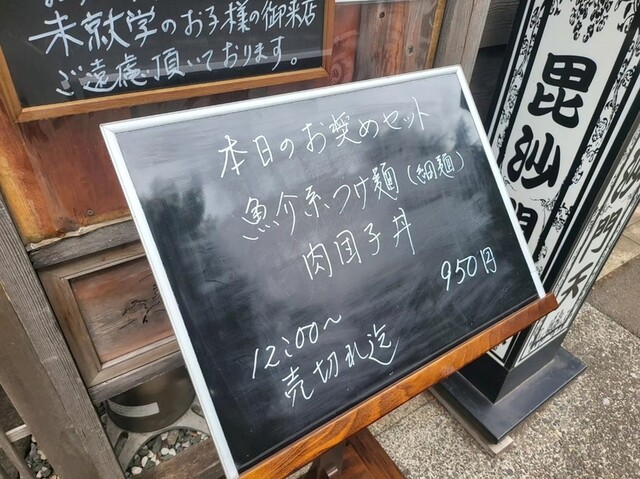 未就学のお子様の御来店
ご遠慮頂いております。
本日のお奨めセット
魚介系つけ麺(細麺)
肉団子丼
950円
12:00〜
売切れ迄
毘沙門
沙門天